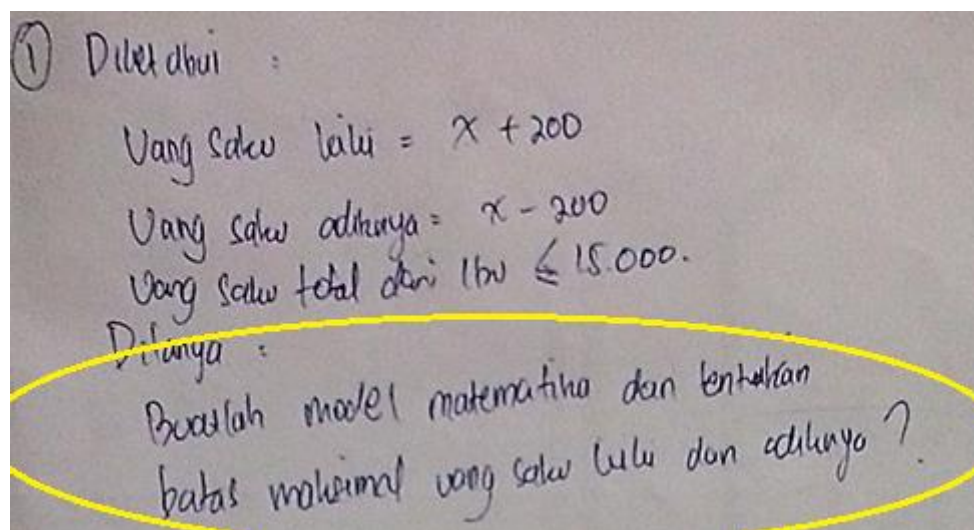 ① Diketahui :
Uang saku lulu = x + 200
Uang saku adiknya = x - 200
Uang saku total dari Ibu ≤ 15.000.
Ditanya :
Buatlah model matematika dan tentukan
batas maksimal uang saku lulu dan adiknya ?